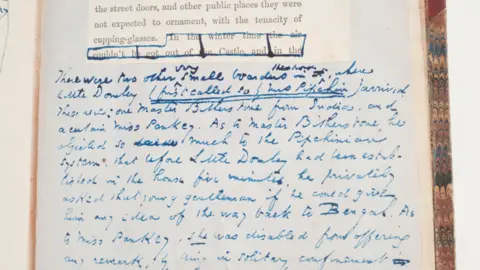 the street doors, and other public places they were
not expected to ornament, with the tenacity of
cupping-glasses. In the winter time the air
couldn't be got out of the Castle, and in the
There were two other very small boarders in the house when
Little Dombey (first called so by Mrs Pipchin) arrived.
These were; one Master Bitherstone from India. and
a certain Miss Pankey. As to Master Bitherstone, he
objected so much to the Pipchinian
system, that before Little Dombey had been estab-
lished in the house five minutes, he privately
asked that young gentleman if he could give
him any idea of the way back to Bengal. As
to Miss Pankey, she was disabled from offering
any remark, by being in solitary confinement